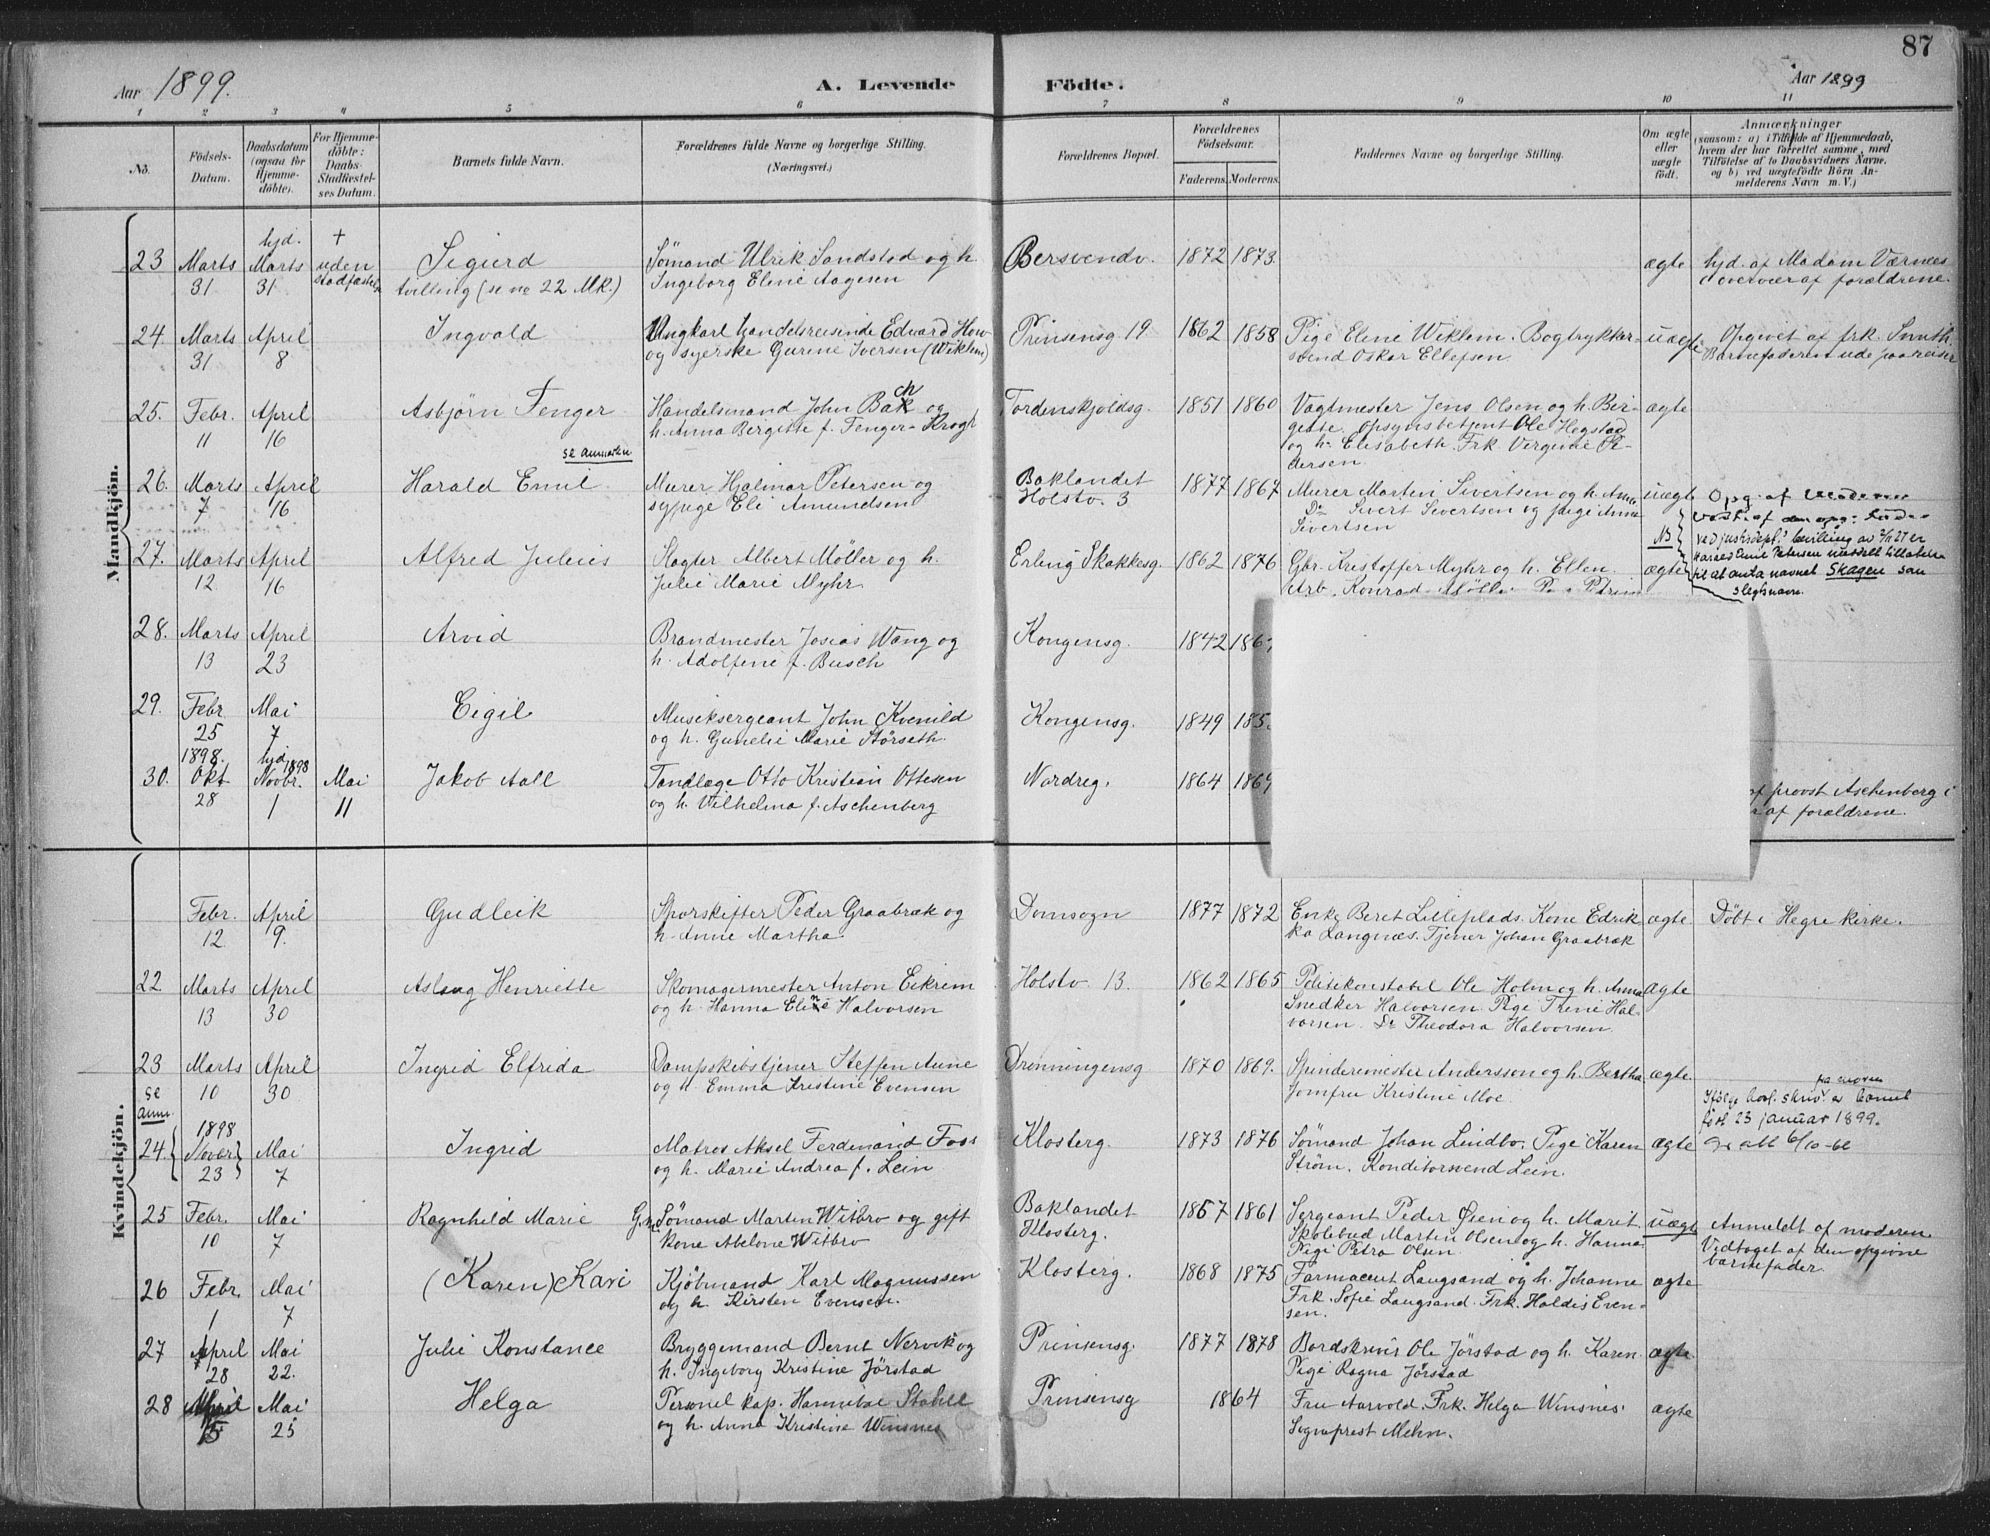 87
Aar 1899.
A. Levende Födte.
Aar 1899
1 2 3 4 5 6 7 8 9 10 11
No.
Födsels-Datum.
Daabsdatum (ogsaa for Hjemme-döbte).
For Hjemme-döbte: Daabs-Stadfæstel-ses Datum.
Barnets fulde Navn.
Forældrenes fulde Navne og borgerlige Stilling. (Næringsvei.)
Forældrenes Bopæl.
Forældrenes Födselsaar.
Faderens. Moderens.
Faddernes Navne og borgerlige Stilling.
Om ægte eller uægte födt.
Anmærkninger
(saasom: a) i Tilfælde af Hjemmedaab, hvem der har forrettet samme, med Tilföielse af to Daabsvidners Navne, og b) ved uægtefödte Börn An-melderens Navn m. V.)
Mandkjön.
hjd. +
23 Marts Marts uden Sigurd Sömand Ulrik Sandstad og h. Bersvendv. 1872 1873 ægte hjd. af Madam Værnes
31 31 Stadfæstelse tvilling (se no 22 MK.) Ingeborg Eline Aagesen overvær af forældrene.
24. Marts April Ingvald Ungkarl handelsreisende Edvard How Prinsensg 19 1862 1858 Pige Eline Wiklem. Bogtrykker- uægte Opgivet af frk. Smith
31 8 og syerske Gurine Iversen (Wiklem) svend Oskar Ellefsen Barnefaderen ude paa reiser
25. Febr. April Asbjörn Fenger Handelsmand John Bach og Tordenskjoldsg. 1851 1860 Vagtmester Jens Olsen og h. Ber- ægte
11 16 h. Anna Bergitte f. Fenger-Krogh gitte. Opsynsbetjent Ole Hegstad
og h. Elisabeth. Frk. Verginie Pe-
dersen
se anmerkn
26. Marts April Harald Emil Murer Hjalmar Petersen og Baklandet 1877 1867 Murer Martin Sivertsen og h. Anne uægte Opg. af Moderen
7 16 sypige Eli Amundsen Holstv. 3 Do Sivert Sivertsen og pige Anna
Sivertsen
NB ved justisdepts bevilling av 2/11 27 er
Harald Emil Petersen meddelt tillatelse
til at anta navnet Skagen som
slegtsnavn.
27. Marts April Alfred Julius Slagter Albert Möller og h. Erling Skakkesg. 1862 1876 Gbr. Kristoffer Myhr og h. Ellen. ægte
12 16 Julie Marie Myhr Arb. Konrad
28. Marts April Arvid Brandmester Josias Wang og Kongensg. 1842
13 23 h. Adolfine f. Busch
29. Febr Mai Eigil Musiksergeant John Kvenild Kongensg. 1849
25 7 og h. Gunelie Marie Störseth
1898. hjd 1898
30. Okt Novbr. Mai Jakob Aall Tandlæge Otto Kristian Ottesen Nordreg. 1864 af provst Aschenberg i
28 1 11 og h. Vilhelma f. Aschenberg af forældrene.
Kvindekjön.
Febr. April Gudleik Sporskifter Peder Graabræk og Domsogn 1877 1872 Enke Beret Lilleplads. Kone Edrik- ægte Döbt i Hegre kirke.
12 9. h. Anne Martha. ka Langnæs. Tjener Johan Graabræk
22 Marts April Aslaug Henriette Skomagermester Anton Eikrem Holstv 13. 1862 1865 Politikonstabel Ole Holm og h. Anna ægte
13 30 og h. Hanna Eline Halvorsen Snedker Halvorsen. Pige Trine Hal-
vorsen. Do Theodora Halvorsen
23 Marts April Ingrid Elfrida Dampskibstjener Steffen Aune Dronningensg 1870 1869. Spinderimester Andersson og h. Bertha. ægte
se anm. 10 30 og h. Emma Kristine Evensen Jomfru Kristine Moe.
fra moren
Ifölge bekr. skriv. er barnet
födt 23 januar 1899.
6/10-62
1898
24. Novbr Mai Ingrid Matros Aksel Ferdinand Foss Klosterg. 1873 1876 Sömand Johan Lindbo. Pige Karen ægte
23 7 og h. Marie Andrea f. Lein Ström. Konditorsvend Lein.
25 Febr. Mai Ragnhild Marie G.m. Sömand Martin Witbro og gift Baklandet 1857 1861 Sergeant Peder Öien og h. Marit. uægte Anmeldt af moderen.
10 7 kone Abelone Witbro Klosterg. Skolebud Martin Olsen og h. Hanna. Vedtaget af den opgivne
Pige Petra Olsen barnefader.
26 Febr. Mai (Karen) Kari Kjöbmand Karl Magnussen Klosterg. 1868 1875 Farmaceut Langsand og h. Johanne ægte
1 7 og h. Kirsten Evensen. Frk. Sofie Langsand. Frk. Haldis Even-
sen.
27 April Mai Julie Konstance Bryggemand Bernt Nervik og Prinsensg. 1877 1878 Bordskriver Ole Jörstad og h. Karen. ægte
28 22. h. Ingeborg Kristine Jörstad Pige Ragna Jörstad
28 April Mai Helga Personel kap. Hannibal Stahll Prinsensg 1864 Fru Aarvold. Frk. Helga Winsnes. ægte
15 25 og h. Anna Kristine Winsnes Sogneprest Mehn.